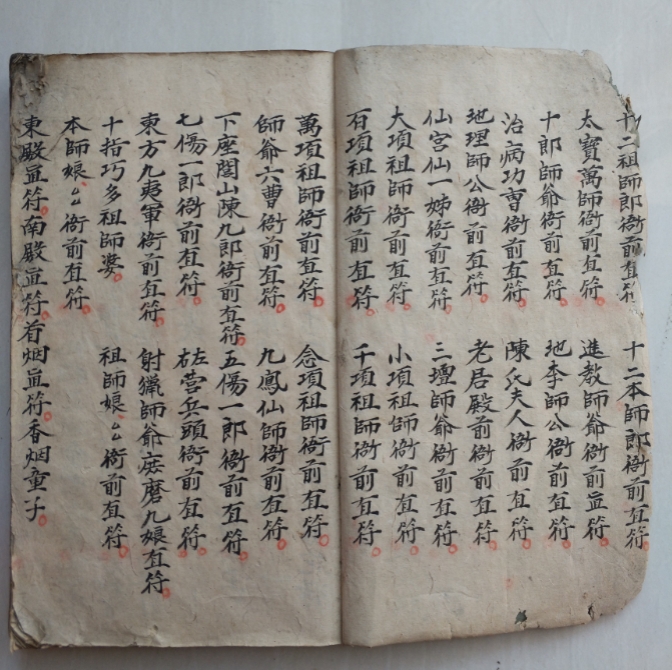 十二祖師郎衙前直符 十二本師郎衙前直符
太寶萬師衙前直符 進教師爺衙前直符
十郎師爺衙前直符 池李師公衙前直符
治病功曹衙前直符 陳氏夫人衙前直符
地理師公衙前直符 老居殿前衙前直符
仙宮仙一姊衙前直符 三壇師爺衙前直符
大項祖師衙前直符 小項祖師衙前直符
百項祖師衙前直符 千項祖師衙前直符
萬項祖師衙前直符 念項祖師衙前直符
師爺六曹衙前直符 九鳳仙師衙前直符
下座閭山陳九郎衙前直符 五傷一郎衙前直符
七傷一郎衙前直符 营兵頭衙前直符
東方九夷軍衙前直符 射獵師爺庶磨九娘直符
十指巧多祖師婆 祖師娘厶衙前直符
本師娘厶衙前直符
東殿直符南殿直符首烟直符香烟童子